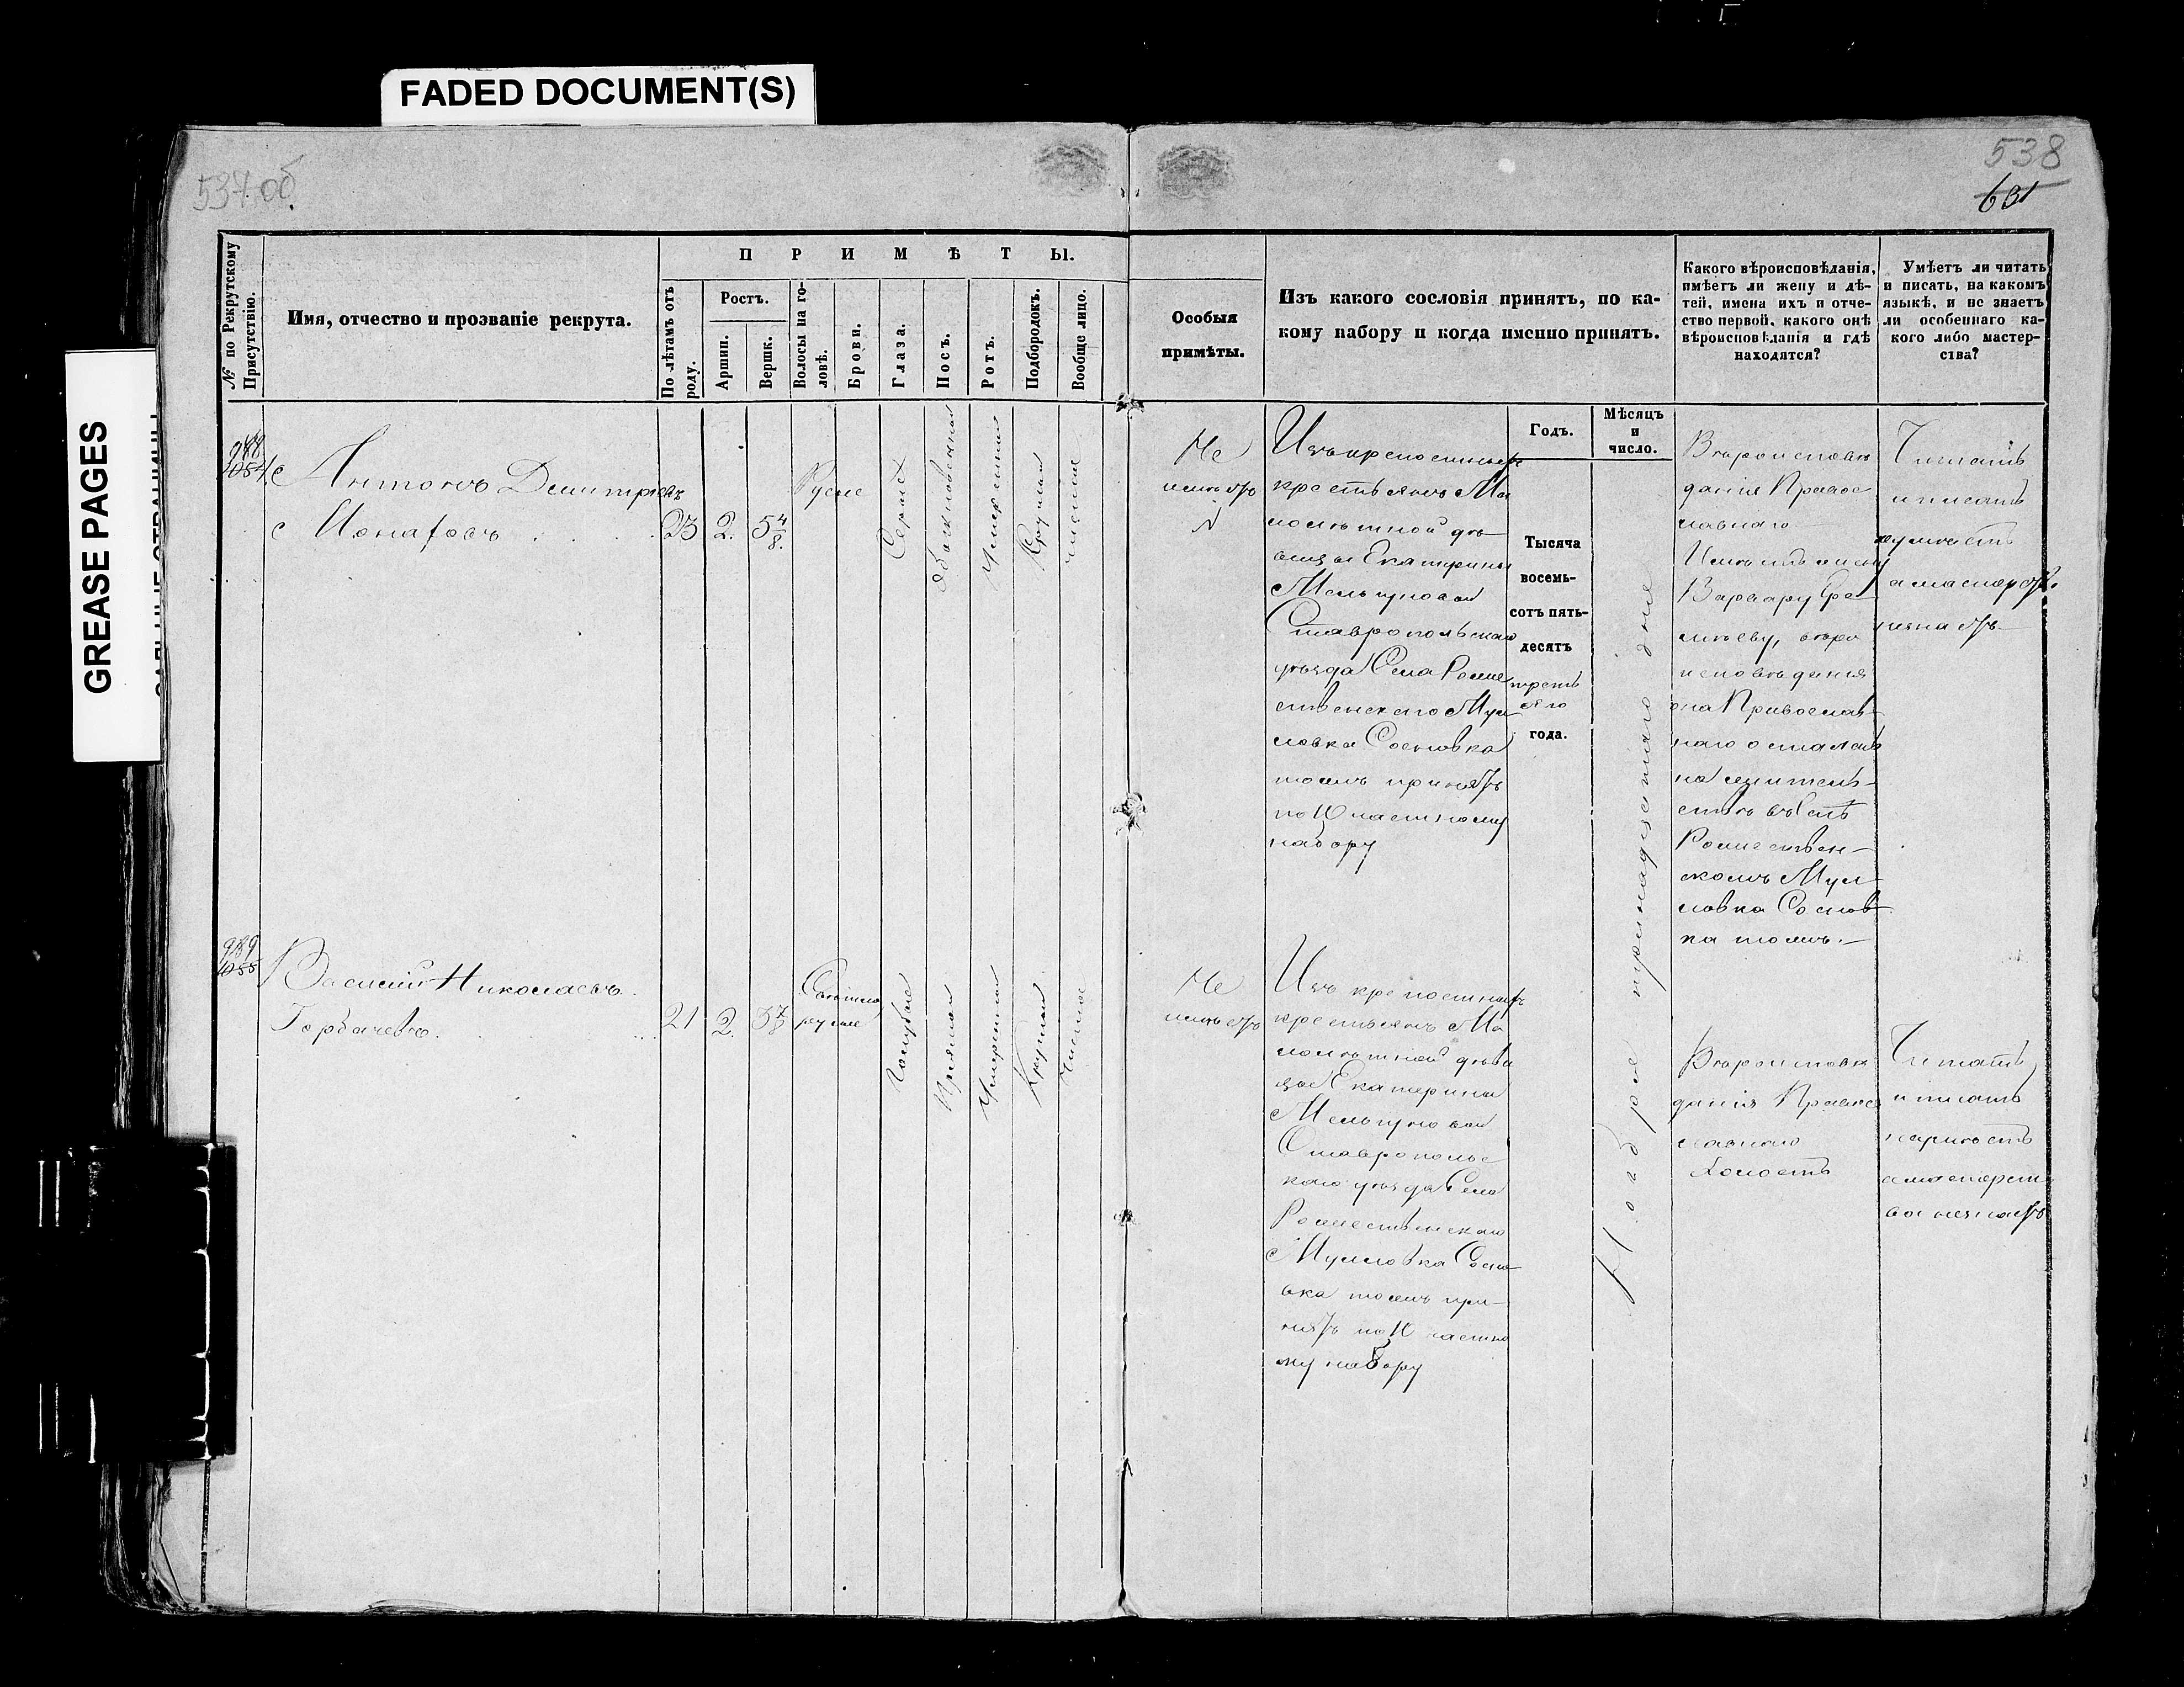 FADED DOCUMENT(S)
GREASE PAGES
537 об.
538
631
№ по Рекрутскому Присутствію.
Имя, отчество и прозваніе рекрута.
ПРИМѢТЫ.
По лѣтамъ отъ роду.
Ростъ.
Аршин.
Вершк.
Волосы на головѣ.
Брови.
Глаза.
Носъ.
Ротъ.
Подбородокъ.
Вообще лицо.
Особыя
примѣты.
Изъ какого сословія принятъ, по ка-
кому набору и когда именно принятъ.
Какого вѣроисповѣданія,
имѣетъ ли жену и дѣ-
тей, имена ихъ и отче-
ство первой, какого онѣ
вѣроисповѣданія и гдѣ
находятся?
Умѣетъ ли читать
и писать, на какомъ
языкѣ, и не знаетъ
ли особеннаго ка-
кого либо мастер-
ства?
Годъ.
Мѣсяцъ
и
число.
988
1054
Антонъ Дмитріевъ
23 2. 5 4/8.
Русые
Серые
Обыкновенный
Умеренный
Круглый
чистое
Не
имѣетъ
Изъ крепостныхъ
крестьянъ Ма
лолѣтной дѣ
вицы Екатерины
Мельгуновой
Ставропольскаго
уѣзда Села Рожде
ственскаго Мул
ловка Сосновка
тожъ принятъ
по 10 частному
набору
Тысяча
восемь-
сотъ пять-
десятъ
треть
яго
года.
Ноября тринадцатаго дня
Вѣроисповѣ
данія Правос
лавнаго
Имѣетъ жену
Варвару Ере
мѣеву, вѣро
исповѣданія
она Православ-
наго осталась
на жительствѣ
въ Селѣ
Рождествен-
скомъ Мул-
ловка Соснов-
ка тожъ.-
Читать
и писать
не умѣетъ
а мастерства
незнаетъ
989
1055
Василій Николаевъ
Горбачевъ
21 2. 3 7/8
Свѣтло
русые
Голубые
Прямой
Умеренный
Круглый
Чистое
Не
имѣетъ
Изъ крепостныхъ
крестьянъ Ма
лолѣтной дѣви
цы Екатерины
Мельгуновой
Ставрополье
каго уѣзда Села
Рождественскаго
Мулловка Сосно
вка тожъ при-
нятъ по 10 частно
му набору
Вѣроисповѣ
данія Правос
лавнаго
Холостъ
Читать
и писать
неумѣетъ
а мастерст
ва незнаетъ